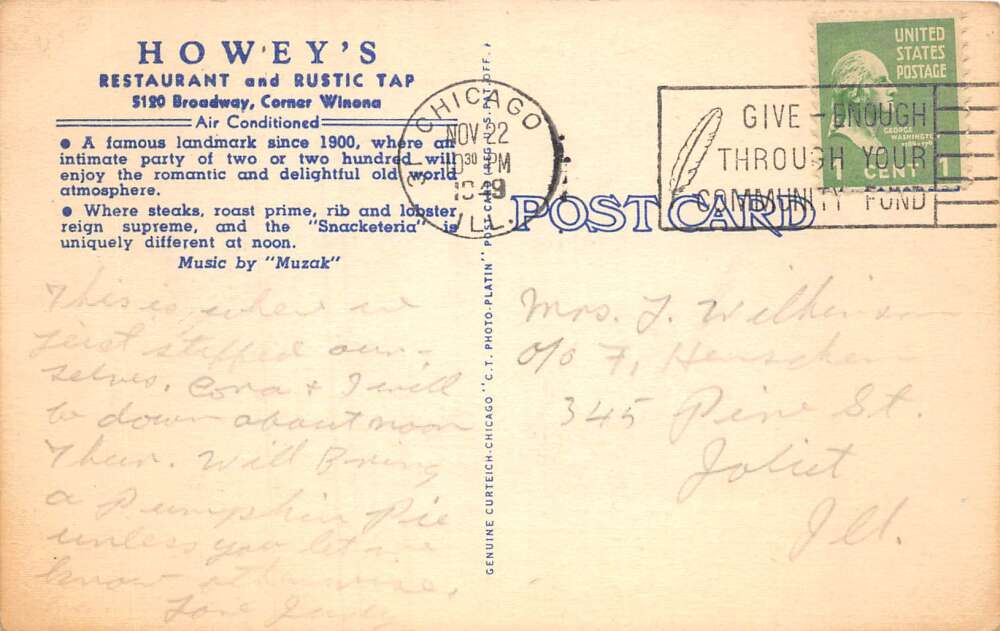 HOWEY'S
RESTAURANT and RUSTIC TAP
5120 Broadway, Corner Winona
Air Conditioned
● A famous landmark since 1900, where an
intimate party of two or two hundred will
enjoy the romantic and delightful old world
atmosphere.
● Where steaks, roast prime, rib and lobster
reign supreme, and the "Snacketeria" is
uniquely different at noon.
Music by "Muzak"
This is where we
just stuffed our-
selves. Cora & I will
be down about noon
Thur. Will Bring
a Pumpkin Pie
unless you let me
know otherwise.
Love
GENUINE CURTEICH-CHICAGO "C.T. PHOTO-PLATIN" POST CARD (REG. U.S. PAT. OFF.)
CHICAGO
NOV 22
10 30 PM
1949
ILL.
POST CARD
GIVE ENOUGH
THROUGH YOUR
COMMUNITY FUND
UNITED
STATES
POSTAGE
GEORGE
WASHINGTON
1 CENT 1
Mrs. J. Wilkinson
c/o F.
345 Pine St.
Joliet
Ill.